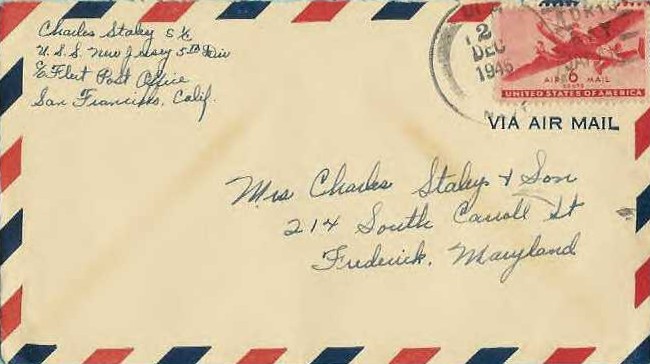 Charles Staley S 1/c
U.S.S. New Jersey 5th Div
c/o Fleet Post Office
San Francisco, Calif.
2
DEC
1945
TOKYO
JAPAN
AIR 6 MAIL
CENTS
UNITED STATES OF AMERICA
VIA AIR MAIL
Mrs Charles Staley & Son
214 South Carroll St
Frederick, Maryland